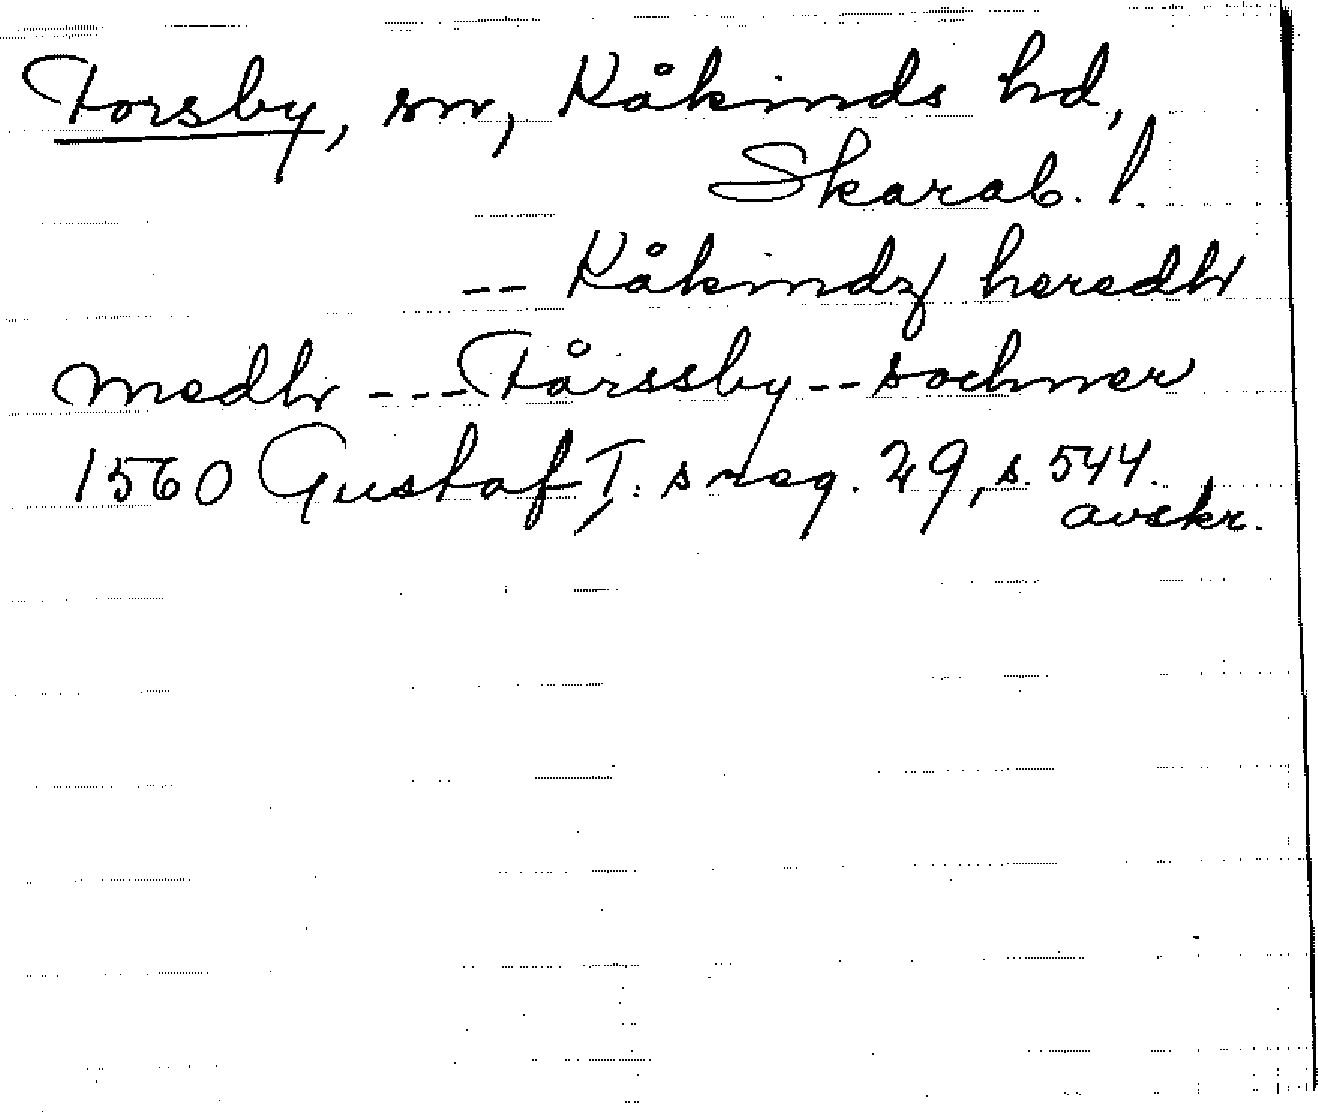 Forsby, sn, Kåkinds hd,
Skarab. l.
-- Kåkindz heredh
medh --- Fårssby -- sochner
1560 Gustaf I:s reg. 29, s. 544.
avskr.